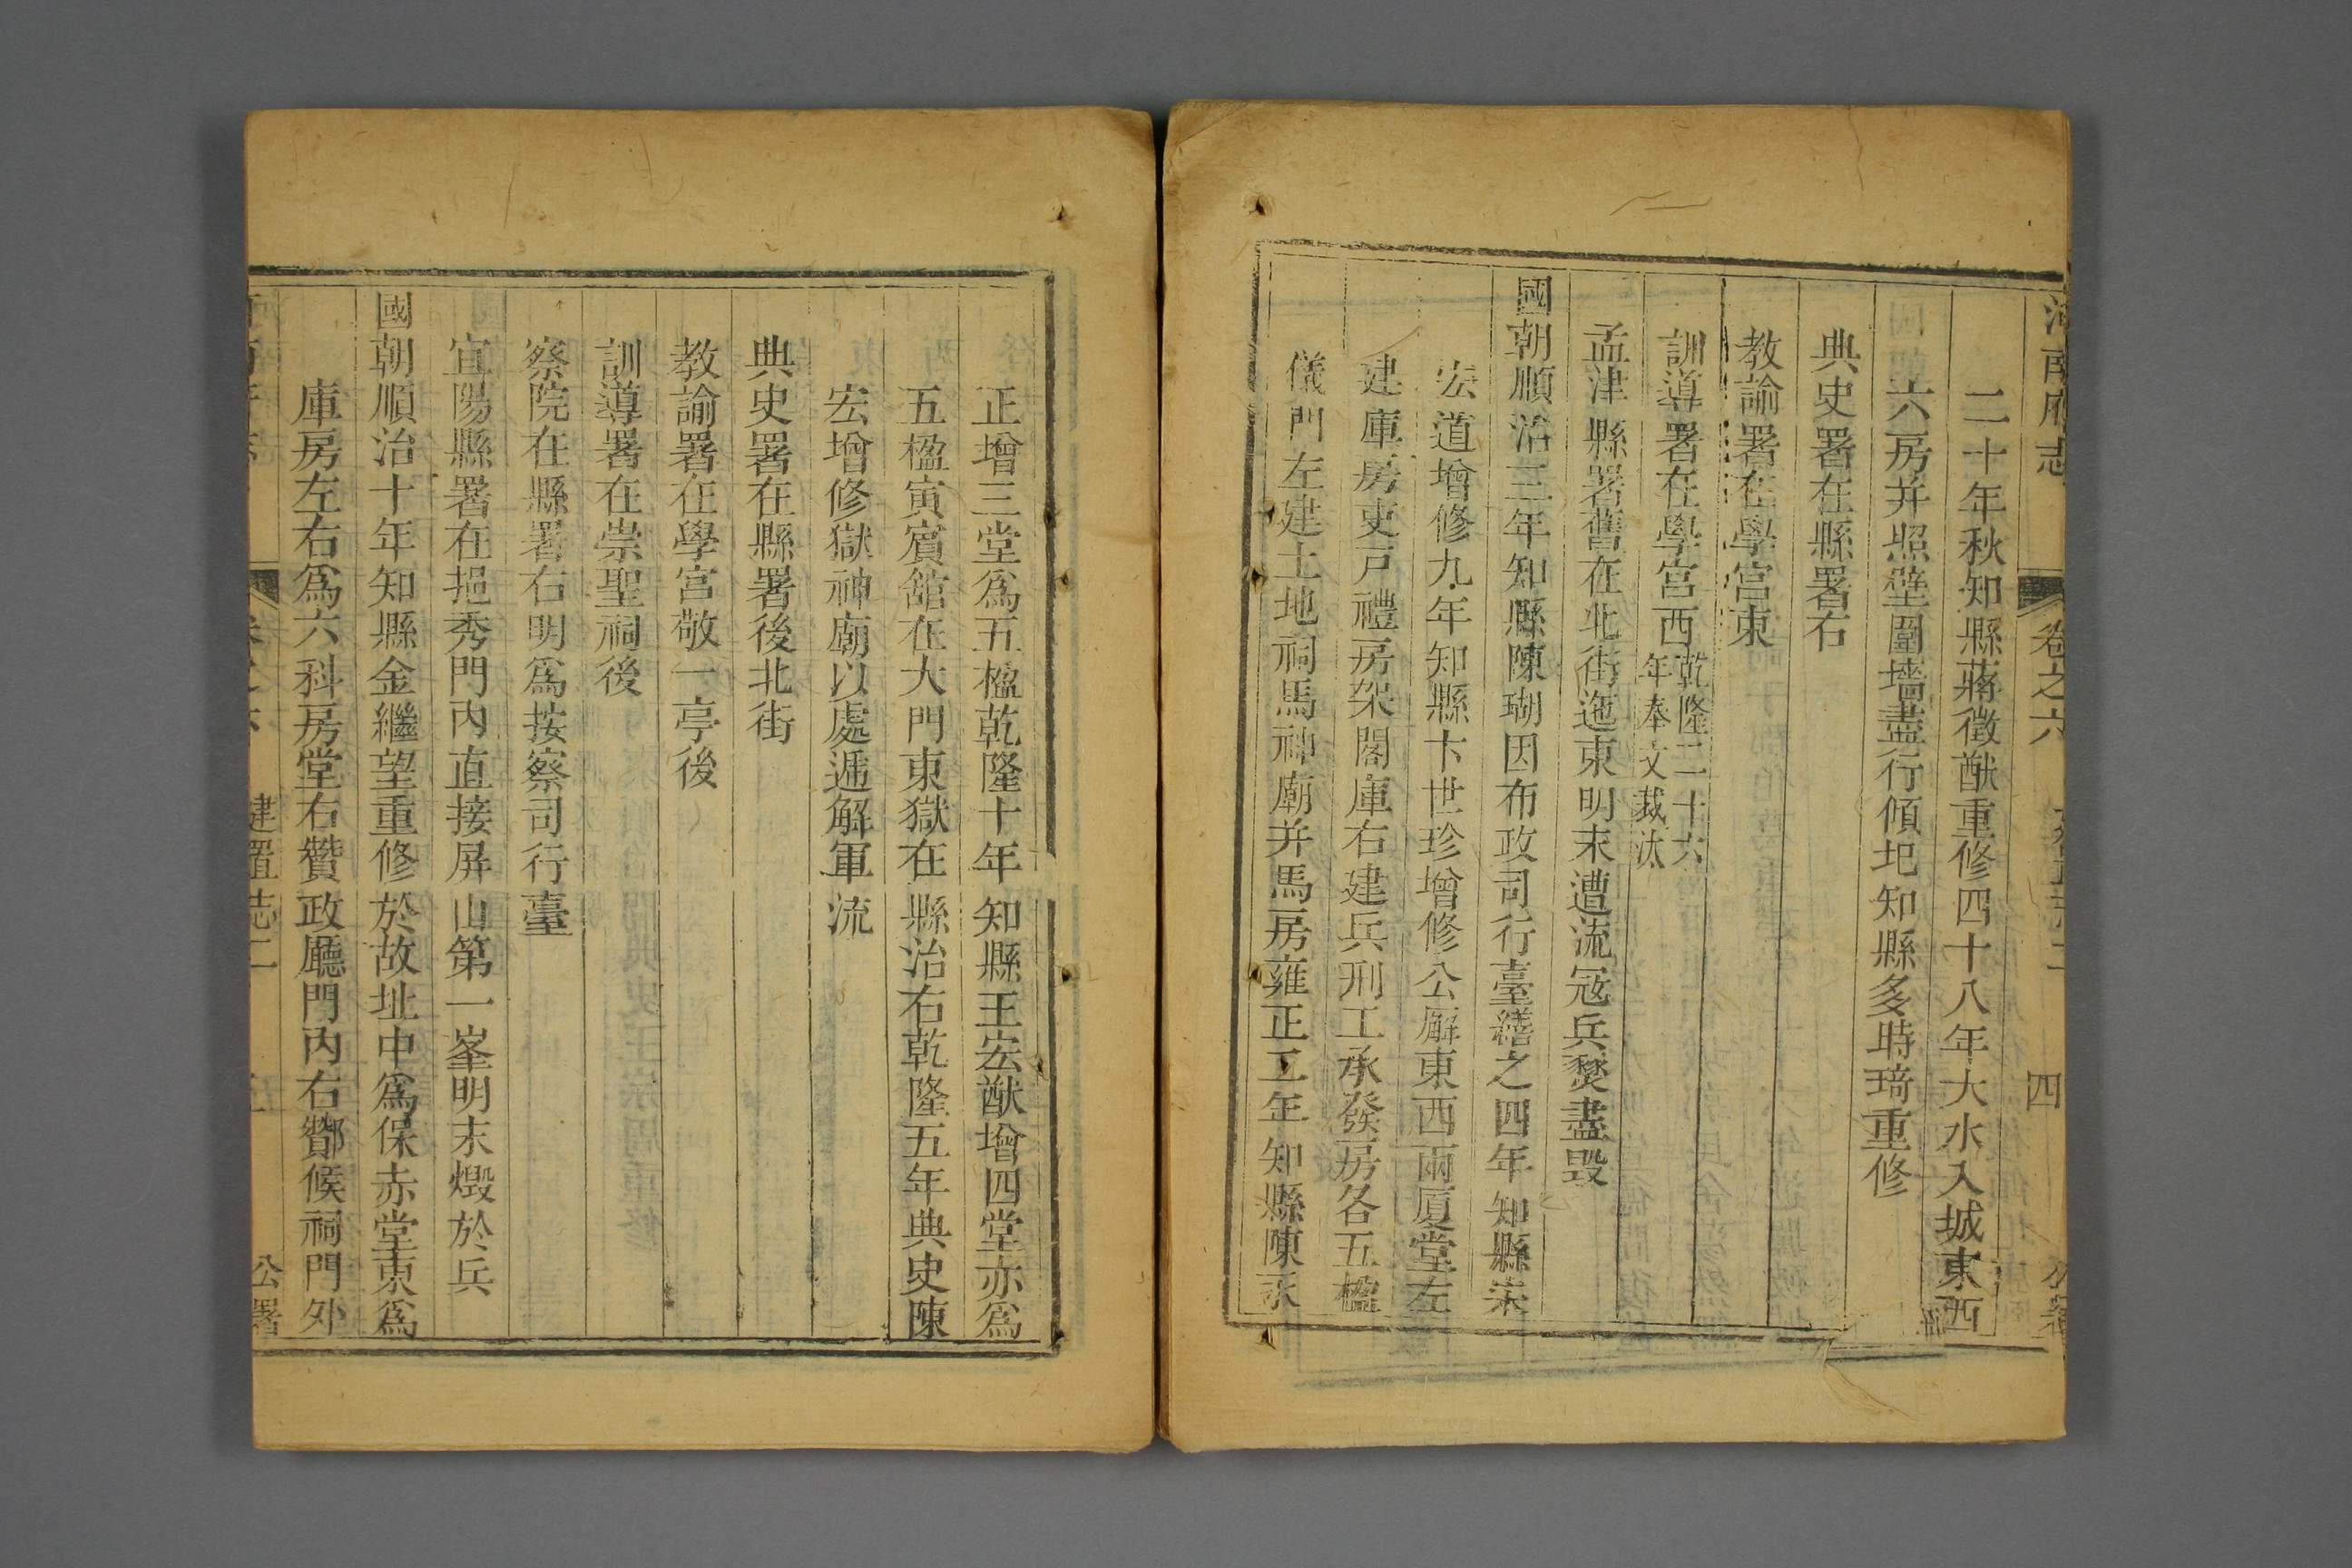 河南府志 卷之六 建置志二 四 公署
二十年秋知縣蔣徵猷重修四十八年大水入城東西
六房并照壁圍墻盡行傾圮知縣多時琦重修
典史署在縣署右
教諭署在學宮東
訓導署在學宮西乾隆二十六
年奉文裁汰
孟津縣署舊在北街迤東明末遭流寇兵燹盡毀
國朝順治三年知縣陳瑚因布政司行臺繕之四年知縣柴
宏道增修九年知縣卞世珍增修公廨東西兩厦堂左
建庫房吏戸禮房架閣庫右建兵刑工承發房各五楹
儀門左建土地祠馬神廟并馬房雍正五年知縣陳永
正增三堂爲五楹乾隆十年知縣王宏猷增四堂亦爲
五楹寅賔舘在大門東獄在縣治右乾隆五年典史陳
宏增修獄神廟以處遞解軍流
典史署在縣署後北街
教諭署在學宮敬一亭後
訓導署在崇聖祠後
察院在縣署右明爲按察司行臺
宜陽縣署在挹秀門内直接屏山第一峯明末燬於兵
國朝順治十年知縣金繼望重修於故址中爲保赤堂東爲
庫房左右爲六科房堂右贊政廳門内右酇候祠門外
建置志二 五 公署